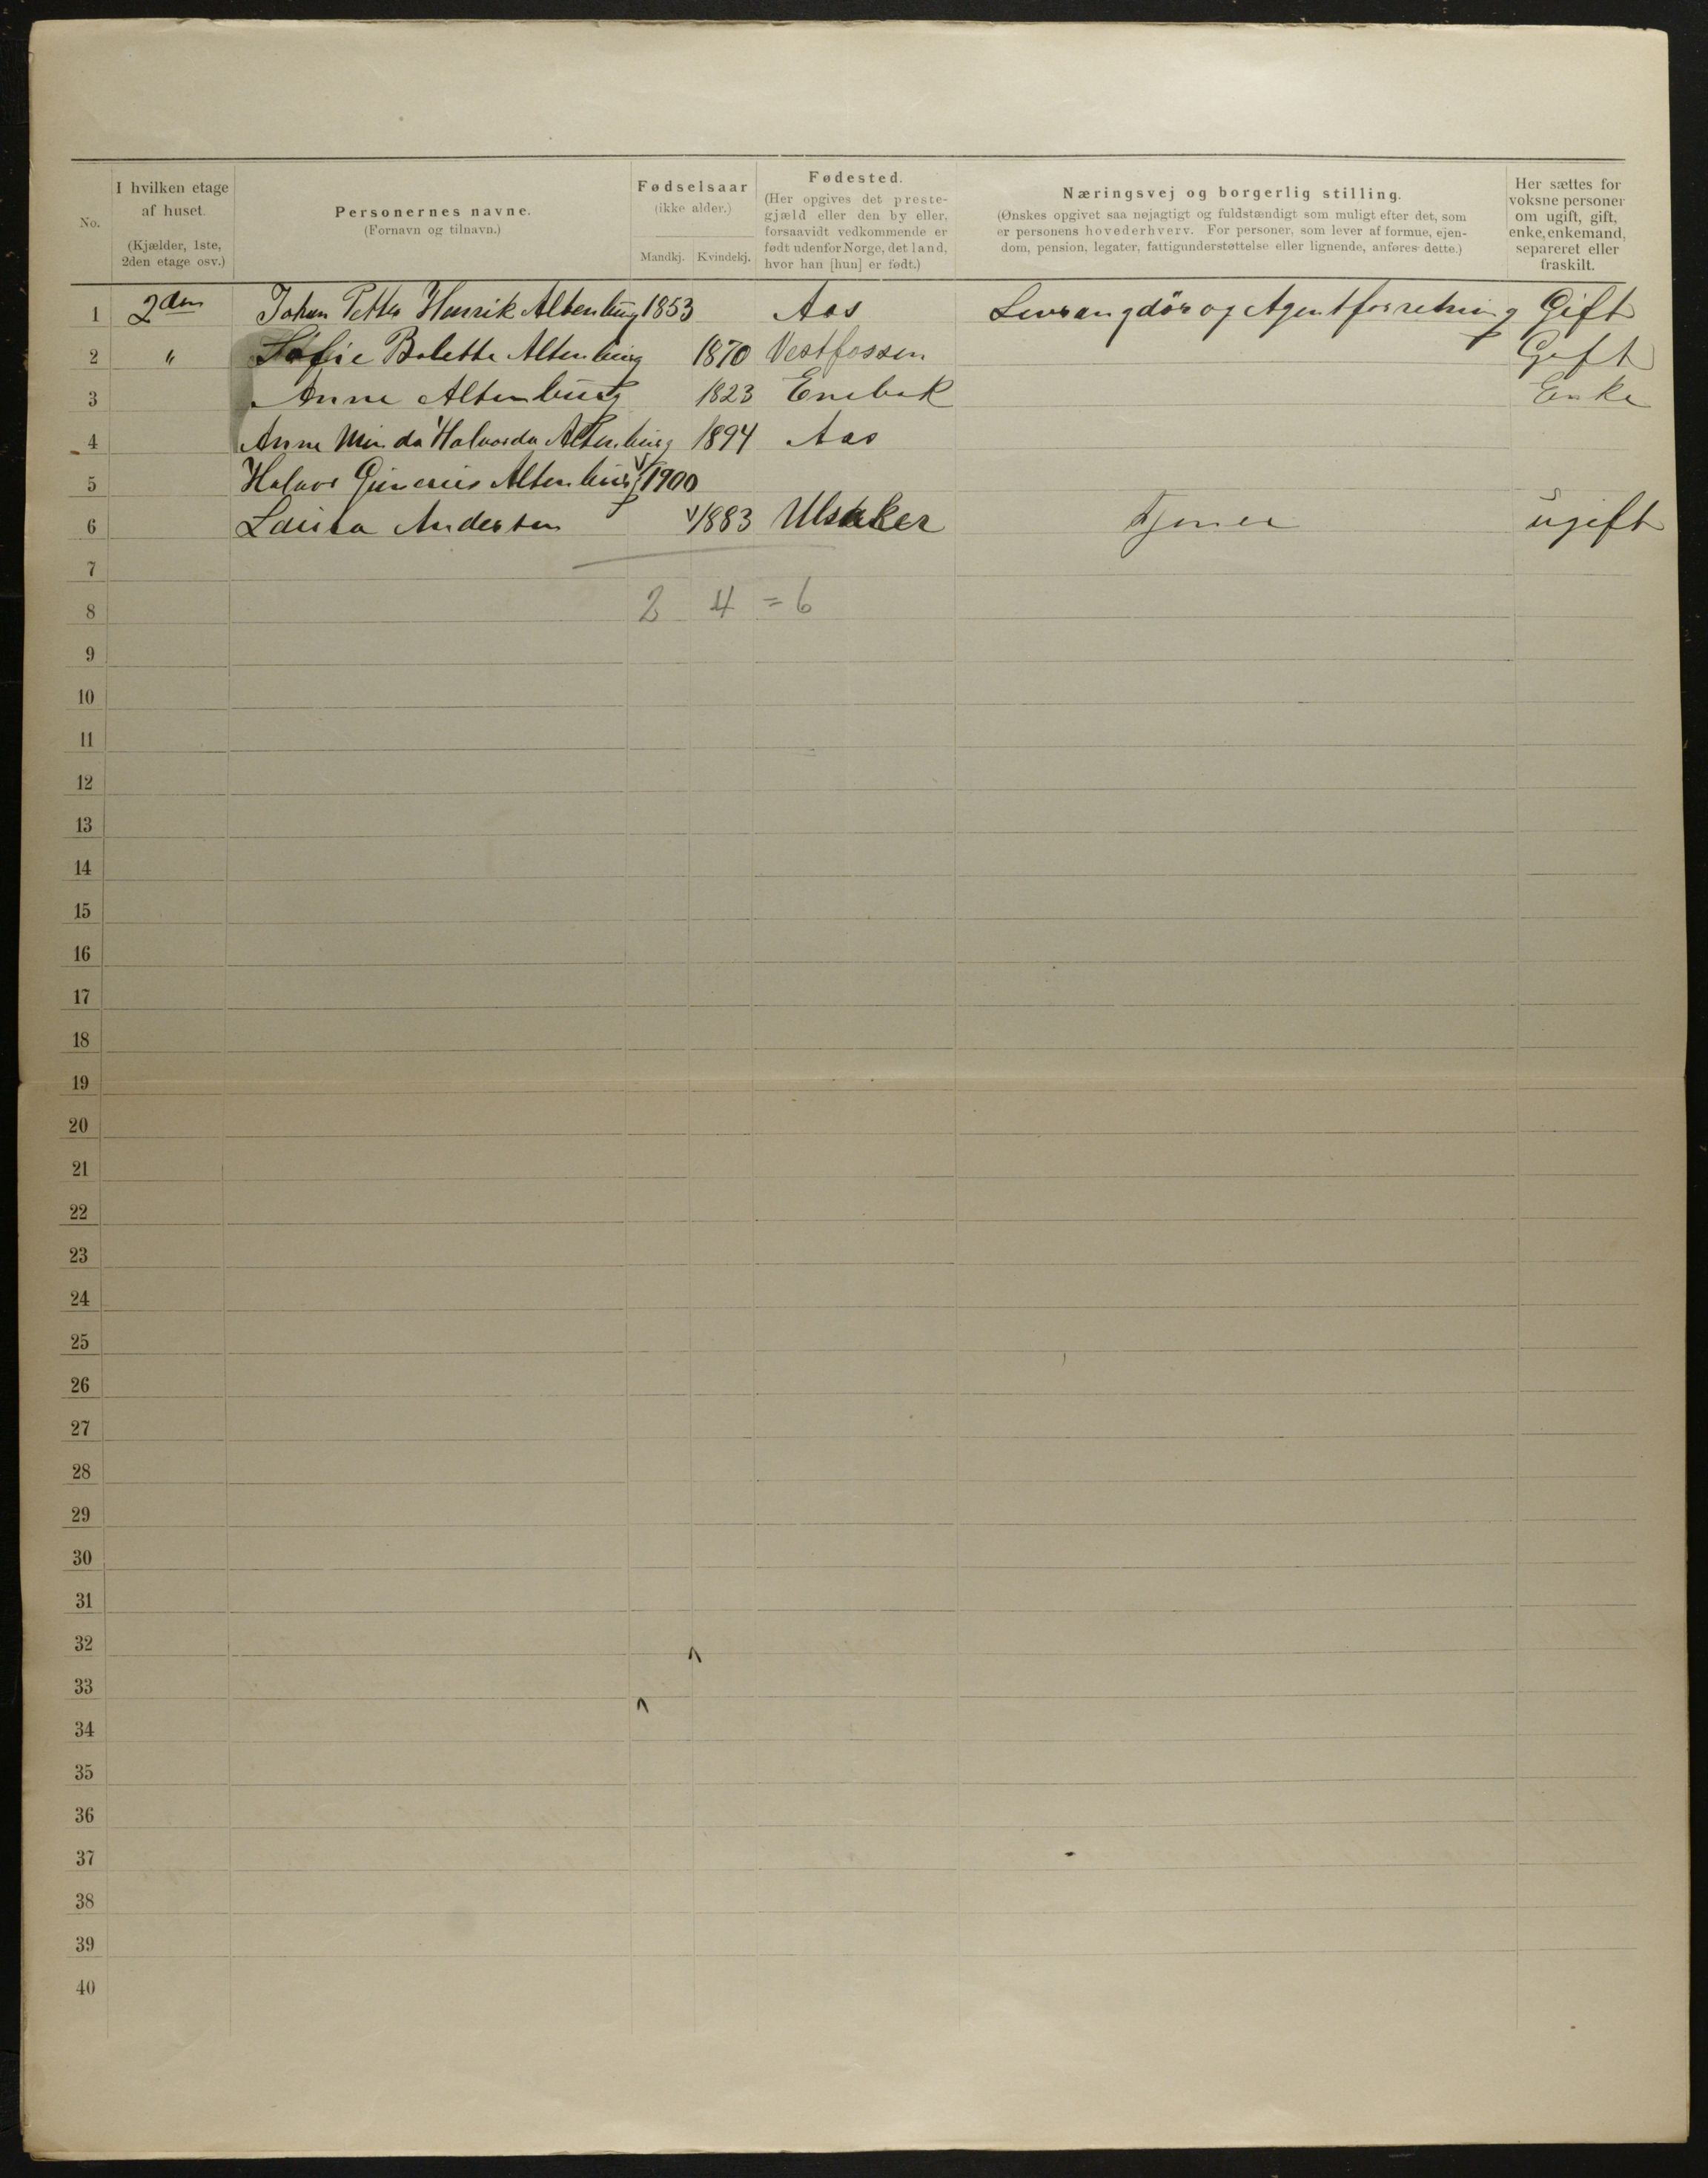 No.
I hvilken etage af huset. (Kjælder, 1ste, 2den etage osv.)
Personernes navne. (Fornavn og tilnavn.)
Fødselsaar (ikke alder.)
Mandkj. Kvindekj.
Fødested. (Her opgives det prestegjæld eller den by eller, forsaavidt vedkommende er født udenfor Norge, det land, hvor han [hun] er født.)
Næringsvej og borgerlig stilling.
(Ønskes opgivet saa nøjagtigt og fuldstændigt som muligt efter det, som
er personens hovederhverv. For personer, som lever af formue, ejen-
dom, pension, legater, fattigunderstøttelse eller lignende, anføres dette.)
Her sættes for voksne personer om ugift, gift, enke, enkemand, separeret eller fraskilt.
1 2den Johan Petter Henrik Altenburg 1853 Aas Levrangdör og Agentforretning Gift
2 " Sofie Bolette Altenburg 1870 Vestfossen Gift
3 Anne Altenburg 1823 Enebak Enke
4 Anne Minda Halvorda Altenburg 1894 Aas
5 Halvor Ginerius Altenburg 1900
6 Laura Andersen 1883 Ulsaker Tjener ugift
7
8 2 4 = 6
9
10
11
12
13
14
15
16
17
18
19
20
21
22
23
24
25
26
27
28
29
30
31
32
33
34
35
36
37
38
39
40